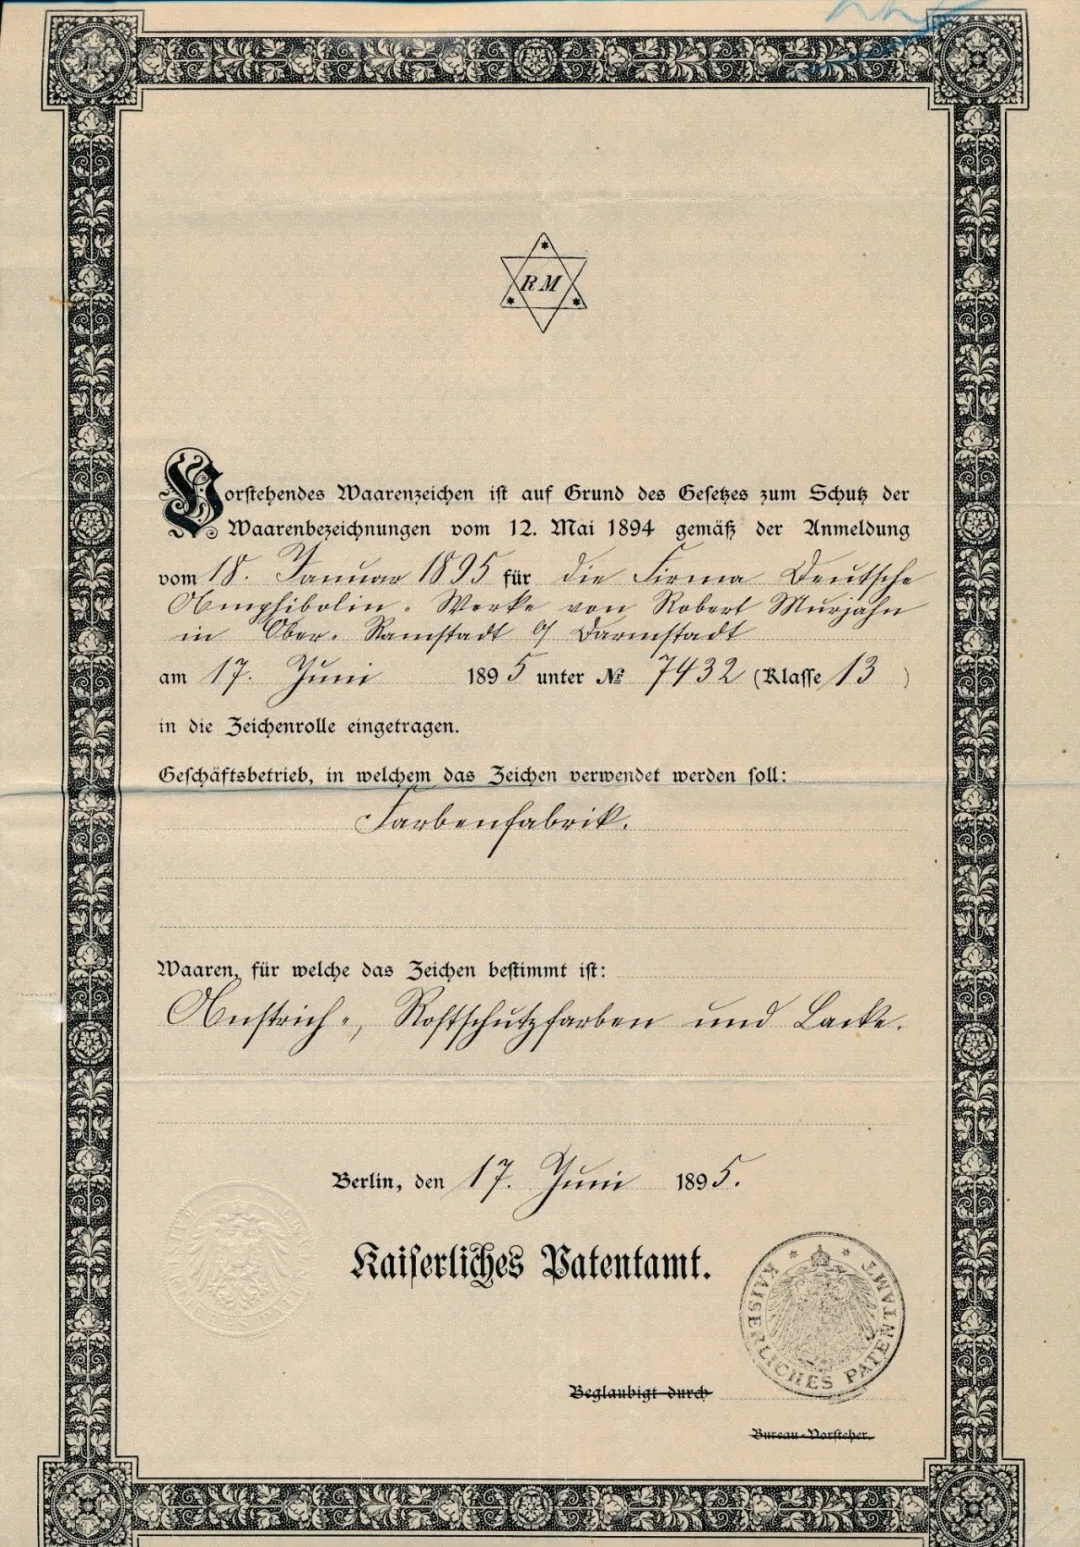 RM
Vorstehendes Waarenzeichen ist auf Grund des Gesetzes zum Schutz der
Waarenbezeichnungen vom 12. Mai 1894 gemäß der Anmeldung
vom 18. Januar 1895 für die Firma Deutsche
Amphibolin-Werke von Robert Murjahn
in Ober-Ramstadt o/ Darmstadt
am 17. Juni 1895 unter № 7432 (Klasse 13)
in die Zeichenrolle eingetragen.
Geschäftsbetrieb, in welchem das Zeichen verwendet werden soll:
Farbenfabrik.
Waaren, für welche das Zeichen bestimmt ist:
Anstrich-, Rostschutzfarben und Lacke.
Berlin, den 17. Juni 1895.
Kaiserliches Patentamt.
KAISERLICHES PATENTAMT
Beglaubigt durch
Bureau-Vorsteher.